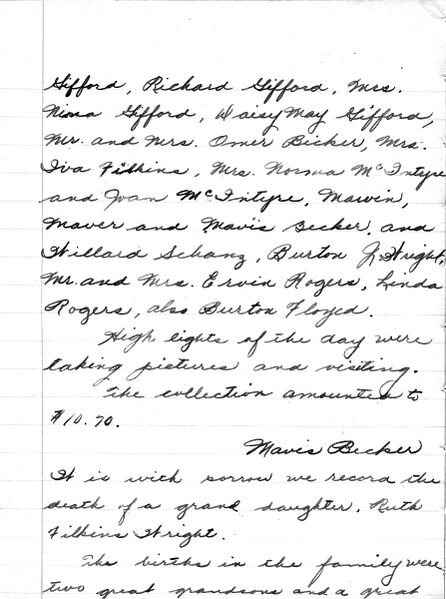 Gifford, Richard Gifford, Mrs.
Nima Gifford, Daisy May Gifford,
Mr. and Mrs. Omer Becker, Mrs.
Iva Filkins, Mrs. Norma McIntyre
and Joan McIntyre, Marvin,
Maver and Mavis Becker, and
Willard Schanz, Burton J. Wright,
Mr. and Mrs. Ervin Rogers, Linda
Rogers, also Burton Floyed.
High lights of the day were
taking pictures and visiting.
The collection amounted to
$10.70.
Mavis Becker
It is with sorrow we record the
death of a grand daughter, Ruth
Filkins Wright.
The births in the family were
two great grandsons and a great